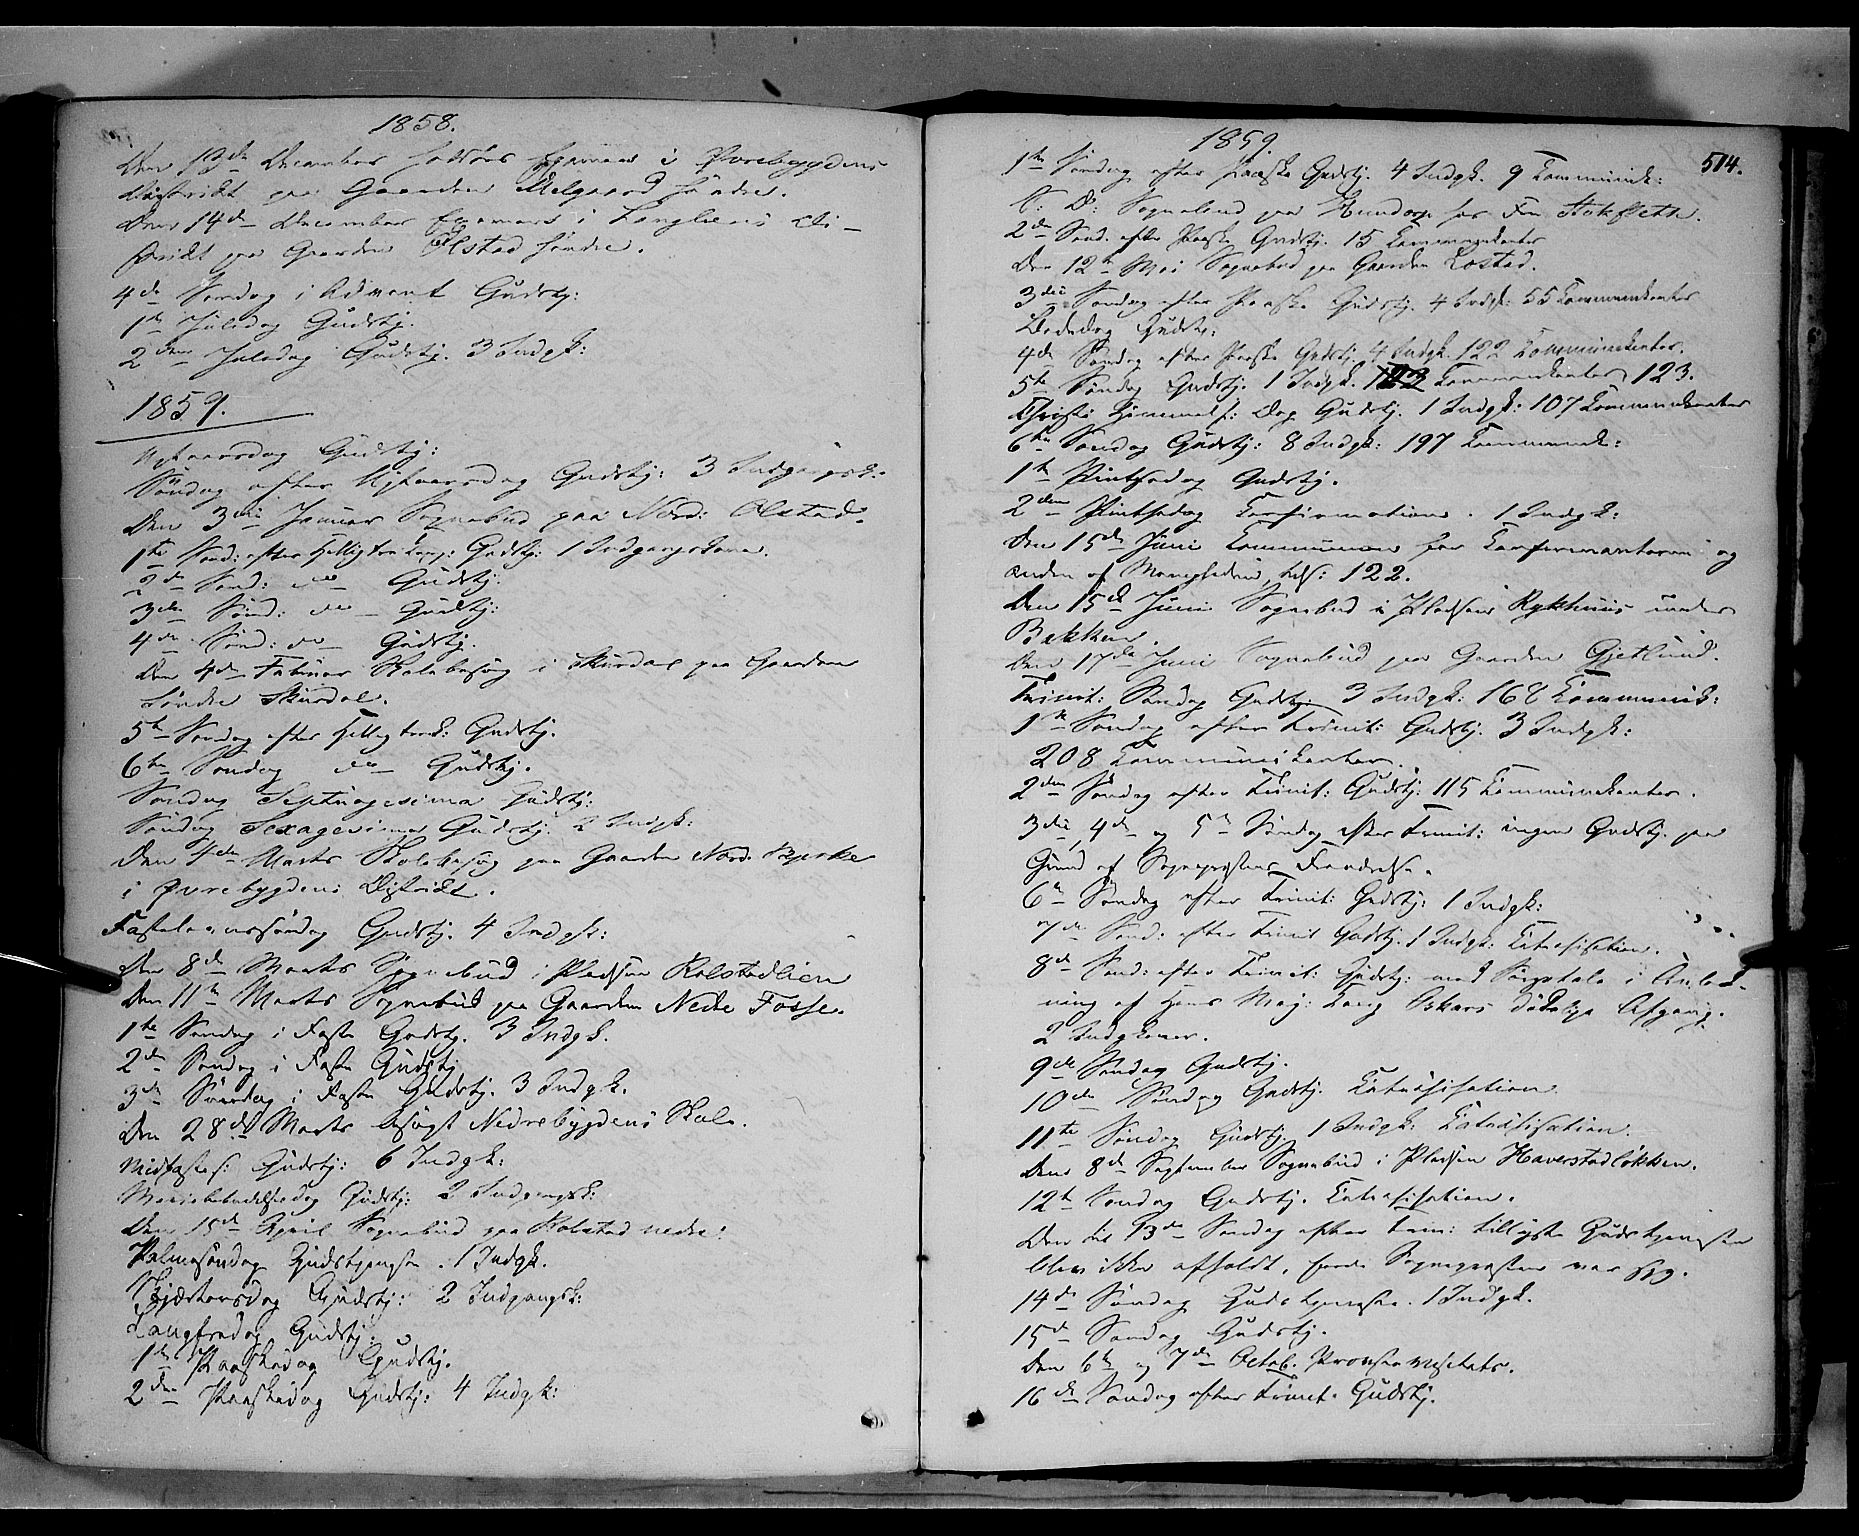 1858.
Den 13de December holdtes Examen i Øvrebygdens
District paa Gaarden Melgaard søndre.
Den 14de December Examen i Di-
strikt paa Gaarden Olstad søndre.
4de Søndag i Advent Gudstj:
1ste Juledag Gudstj.
2den Juledag Gudstj. 3 Indgk:
1859.
Nytaarsdag Gudstj:
Søndag efter Nytaarsdag Gudstj: 3 Indgangsk:
Den 3die Januar Sognebud paa Nord: Olstad.
1ste Sønd: efter Helligtrekong: Gudstj: 1 Indgangskone.
2den Sønd: do Gudstj:
3die Sønd: do Gudstj:
4de Sønd: do Gudstj.
Den 4de Februar Skolebesøg i Skurdal paa Gaarden
Søndre Skurdal.
5te Søndag efter Helligtrek: Gudstj.
6te Søndag do Gudstj.
Søndag Septuagesima Gudstj:
Søndag Sexagesima Gudstj. 2 Indgk:
Den 4de Marts Skolebesøg paa Gaarden Nord.
i Øvrebygdens District.
Fastelavnssøndag Gudstj. 4 Indgk:
Den 8de Marts Sognebud i Pladsen Kolstadlien
Den 11te Marts Sognebud paa Gaarden Nedre Fosse.
1ste Søndag i Faste Gudstj. 3 Indgk.
2den Søndag i Faste Gudstj
3die Søndag i Faste Gudstj. 3 Indgk.
Den 28de Marts besøgt Nedrebygdens Skole.
Midfastes: Gudstj: 6 Indgk:
Mariebebudelsesdag Gudstj: 2 Indgangsk:
Den 15de April Sognebud paa Kolstad nedre:
Palmesøndag Gudstjeneste. 1 Indgk.
Skjærtorsdag Gudstj: 2 Indgangsk:
Langfredag Gudstj:
1ste Paaskedag Gudstj.
2den Paaskedag Gudstj: 4 Indgk:
1859.
514.
1ste Søndag efter Paaske Gudstj. 4 Indgk. 9 Kommunik:
S: D: Sognebud paa Hundorp hos Fru Stokfleth.
2den Sønd. efter Paaske Gudstj. 15 Kommunikanter
Den 12te Mai Sognebud paa Gaarden Lostad.
3die Søndag efter Paaske Gudstj. 4 Indgk: 55 Kommunikanter
Bededag Gudstj:
4de Søndag efter Paaske Gudstj. 4 Indgk. 122 Kommunikanter.
5te Søndag Gudstj. 1 Indgk. Kommunikanter 123.
Christi Himmelf: Dag Gudstj. 1 Indgk: 107 Kommunikanter
6te Søndag Gudstj: 8 Indgk: 197 Kommunik:
1ste Pintsedag Gudstj.
2den Pintsedag Confirmation. 1 Indgk:
Den 15de Juni Kommunion for Confirmanterne og
anden af Menigheden, tils: 122.
Den 15de Juni Sognebud i Pladsen Rykhuus under
Bakken.
Den 17de Juni Sognebud paa Gaarden Gjetlund.
Trinit: Søndag Gudstj. 3 Indgk: 168 Kommunik:
1ste Søndag efter Trinit: Gudstj. 3 Indgk:
208 Kommunikanter.
2den Søndag efter Trinit: Gudstj: 115 Kommunikanter.
3die, 4de og 5te Søndag efter Trinit: ingen Gudstj. paa
Grund af Sognepræstens Fraværelse.
6te Søndag efter Trinit: Gudstj: 1 Indgk:
7de Sønd: efter Trinit Gudstj. 1 Indgk: Katechisation.
8de Sønd: efter Trinit: Gudstj: med Sørgetale i Anled-
ning af Hans Maj: Kong Oskars dødelige Afgang.
2 Indgkoner.
9de Søndag Gudstj.
10de Søndag Gudstj. Katechisation.
11te Søndag Gudstj. 1 Indgk: Katechisation.
Den 8de September Sognebud i Pladsen Haverstadløkken.
12te Søndag Gudstj. Katechisation.
Den til 13de Søndag efter Trin: tillyste Gudstjeneste
blev ikke afholdt, fordi Sognepræsten var syg.
14de Søndag Gudstjeneste. 1 Indgk.
15de Søndag Gudstj.
Den 6te og 7de Octob. Provsten visitats.
16de Søndag efter Trinit. Gudstj.